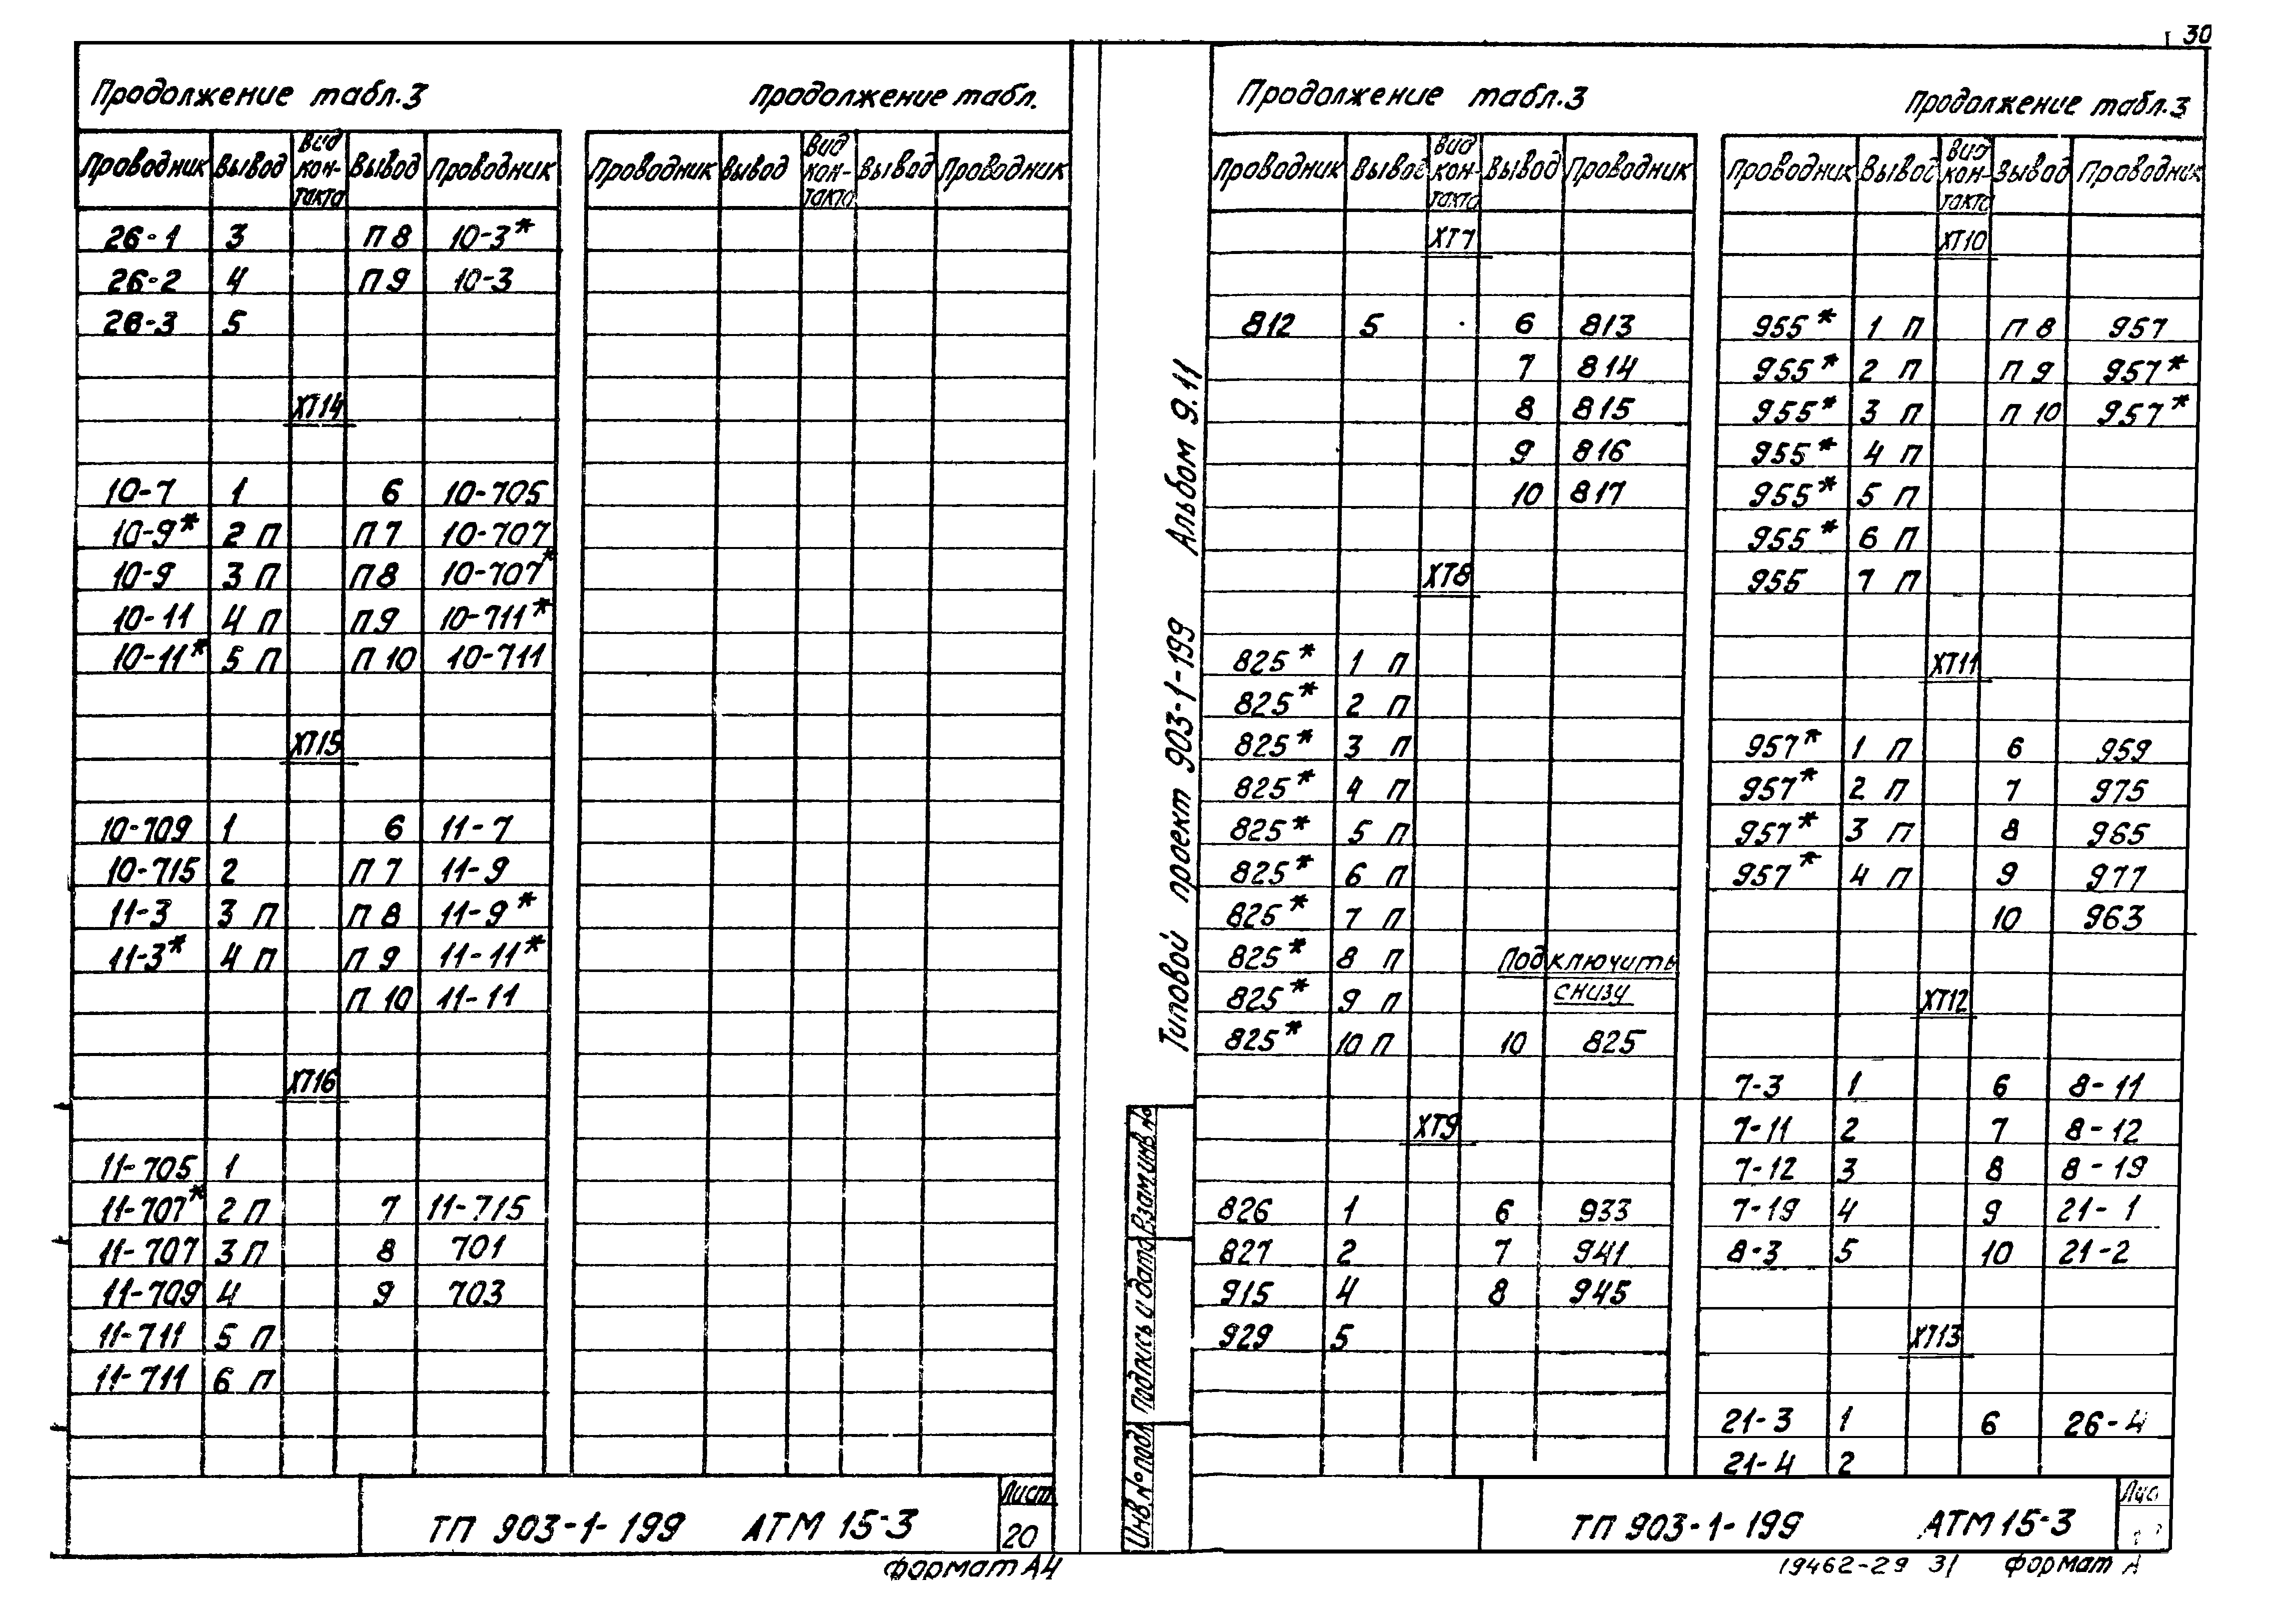 30
Продолжение табл.3
Продолжение табл.
Проводник Вывод Вид кон-такта Вывод Проводник
Проводник Вывод Вид кон-такта Вывод Проводник
26-1 3 П 8 10-3*
26-2 4 П 9 10-3
26-3 5
ХТ14
10-7 1 6 10-705
10-9* 2 П П 7 10-707
10-9 3 П П 8 10-707*
10-11 4 П П 9 10-711*
10-11* 5 П П 10 10-711
ХТ15
10-709 1 6 11-7
10-715 2 П 7 11-9
11-3 3 П П 8 11-9*
11-3* 4 П П 9 11-11*
П 10 11-11
ХТ16
11-705 1
11-707* 2 П 7 11-715
11-707 3 П 8 701
11-709 4 9 703
11-711 5 П
11-711 6 П
ТП 903-1-199 АТМ 15-3
Лист
20
формат А4
Типовой проект 903-1-199 Альбом 9.11
Взам.инв.№
Подпись и дата
Инв.№ подл
Продолжение табл.3
Продолжение табл.3
Проводник Вывод Вид кон-такта Вывод Проводник
ХТ7
812 5 6 813
7 814
8 815
9 816
10 817
ХТ8
825* 1 П
825* 2 П
825* 3 П
825* 4 П
825* 5 П
825* 6 П
825* 7 П
825* 8 П Подключить
825* 9 П снизу
825* 10 П 10 825
ХТ9
826 1 6 933
827 2 7 941
915 4 8 945
929 5
Проводник Вывод Вид кон-такта Вывод Проводник
ХТ10
955* 1 П П 8 957
955* 2 П П 9 957*
955* 3 П П 10 957*
955* 4 П
955* 5 П
955* 6 П
955 7 П
ХТ11
957* 1 П 6 959
957* 2 П 7 975
957* 3 П 8 965
957* 4 П 9 977
10 963
ХТ12
7-3 1 6 8-11
7-11 2 7 8-12
7-12 3 8 8-19
7-19 4 9 21-1
8-3 5 10 21-2
ХТ13
21-3 1 6 26-4
21-4 2
ТП 903-1-199 АТМ 15-3
Лис
19462-29 31 формат А